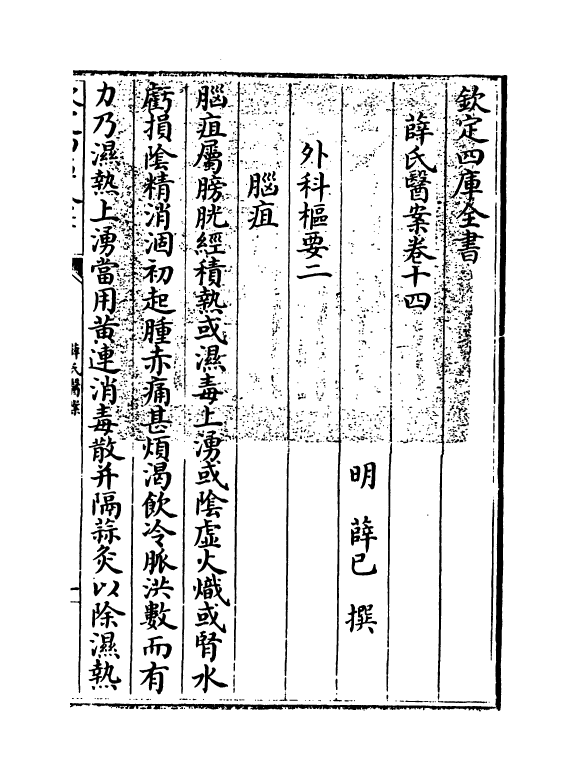 欽定四庫全書
薛氏醫案卷十四
明 薛己 撰
外科樞要二
腦疽
腦疽屬膀胱經積熱或濕毒上湧或陰虛火熾或腎水
虧損陰精消涸初起腫赤痛甚煩渴飲冷脈洪數而有
力乃濕熱上湧當用黄連消毒散并隔蒜灸以除濕熱
薛氏醫案
一